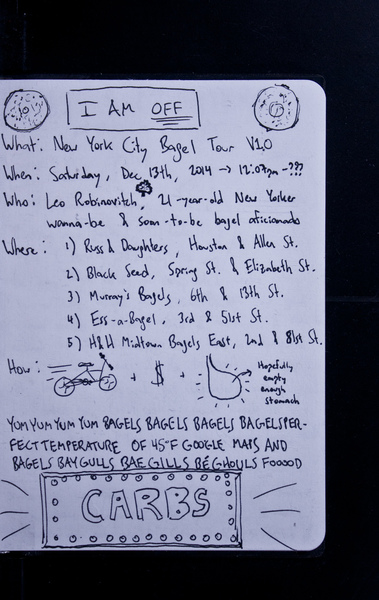 I AM OFF
What: New York City Bagel Tour V1.0
When: Saturday, Dec 13th, 2014 → 12:07pm - ???
Who: Leo Robinovitch, 21-year-old New Yorker
wanna-be & soon-to-be bagel aficionado
Where: 1) Russ & Daughters, Houston & Allen St.
2) Black Seed, Spring St. & Elizabeth St.
3) Murray's Bagels, 6th & 13th St.
4) Ess-a-Bagel, 3rd & 51st St.
5) H&H Midtown Bagels East, 2nd & 81st St.
How: + $ +
Hopefully
empty
enough
stomach
YUM YUM YUM YUM BAGELS BAGELS BAGELS BAGELSPER-
FECT TEMPERATURE OF 45°F GOOGLE MAPS AND
BAGELS BAYGULLS BAE GILLS BÉGHOULS FOOOOD
CARBS